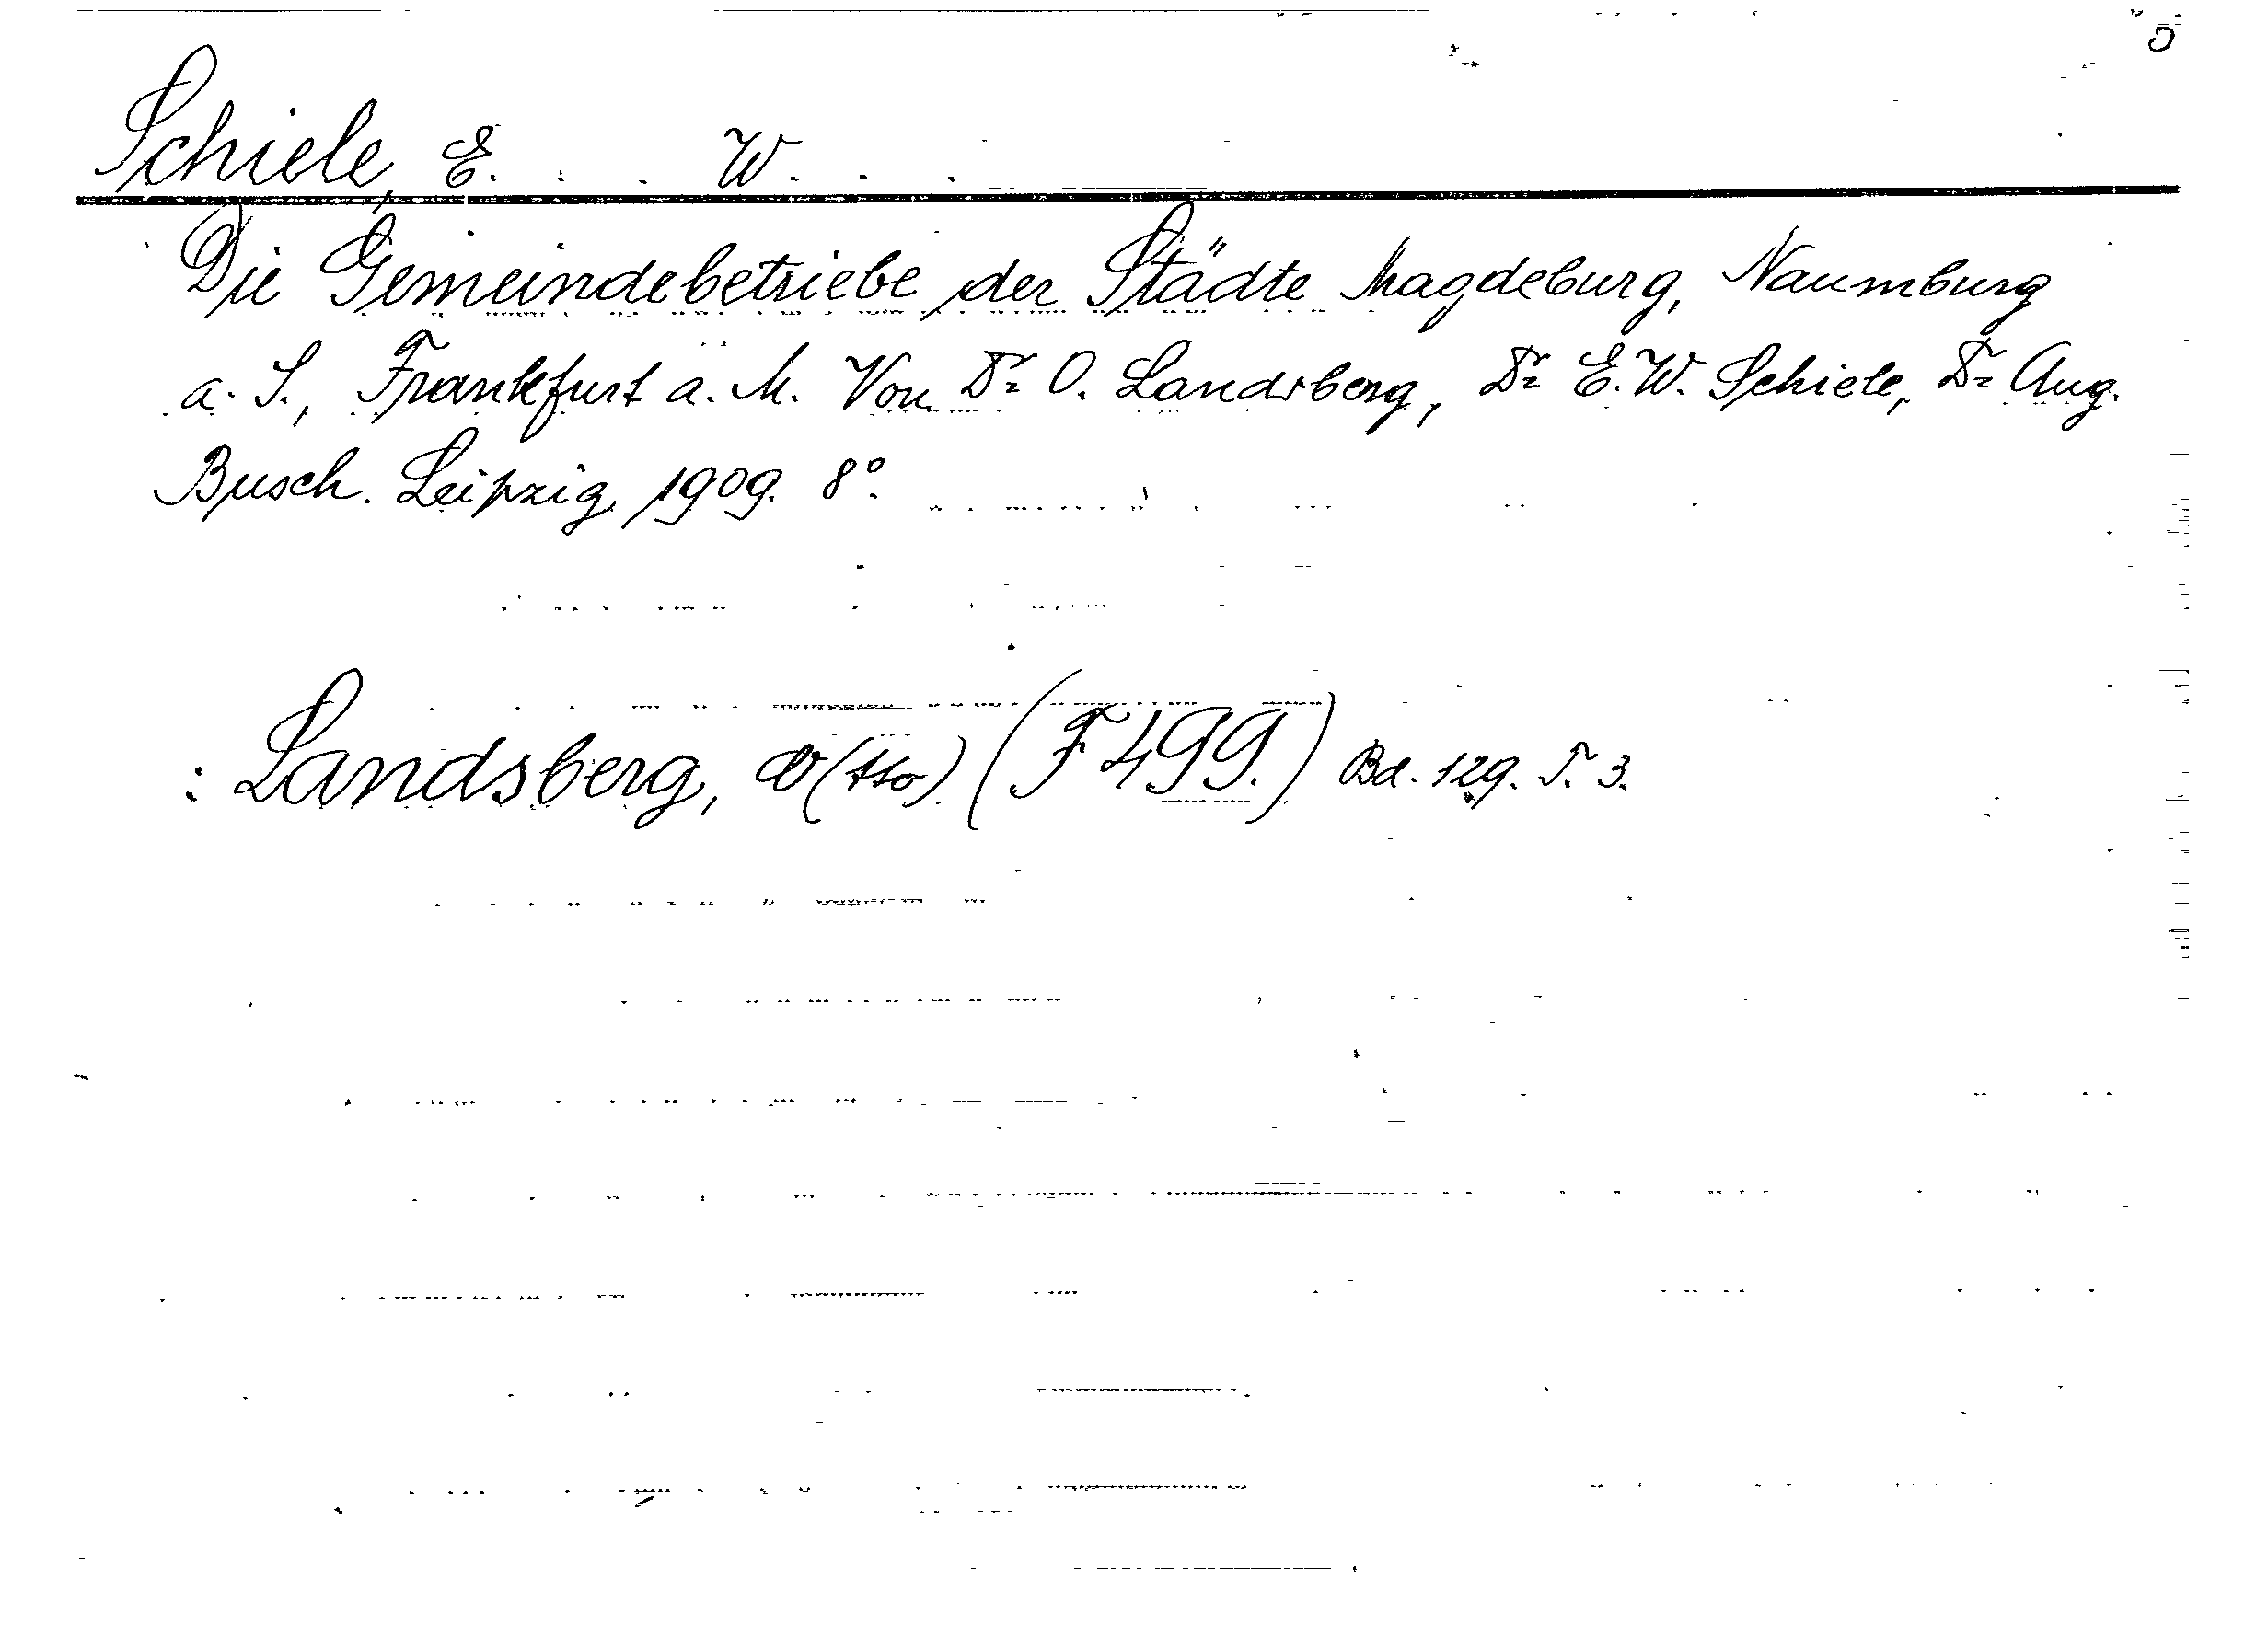 Schiele, E. . . W. . .
Die Gemeindebetriebe der Städte Magdeburg, Naumburg
a. S., Frankfurt a. M. Von Dr. O. Landsberg, Dr. E. W. Schiele, Dr. Aug.
Busch. Leipzig, 1909. 8°.
: Landsberg, O(tto) (F 499.) Bd. 129. T. 3.